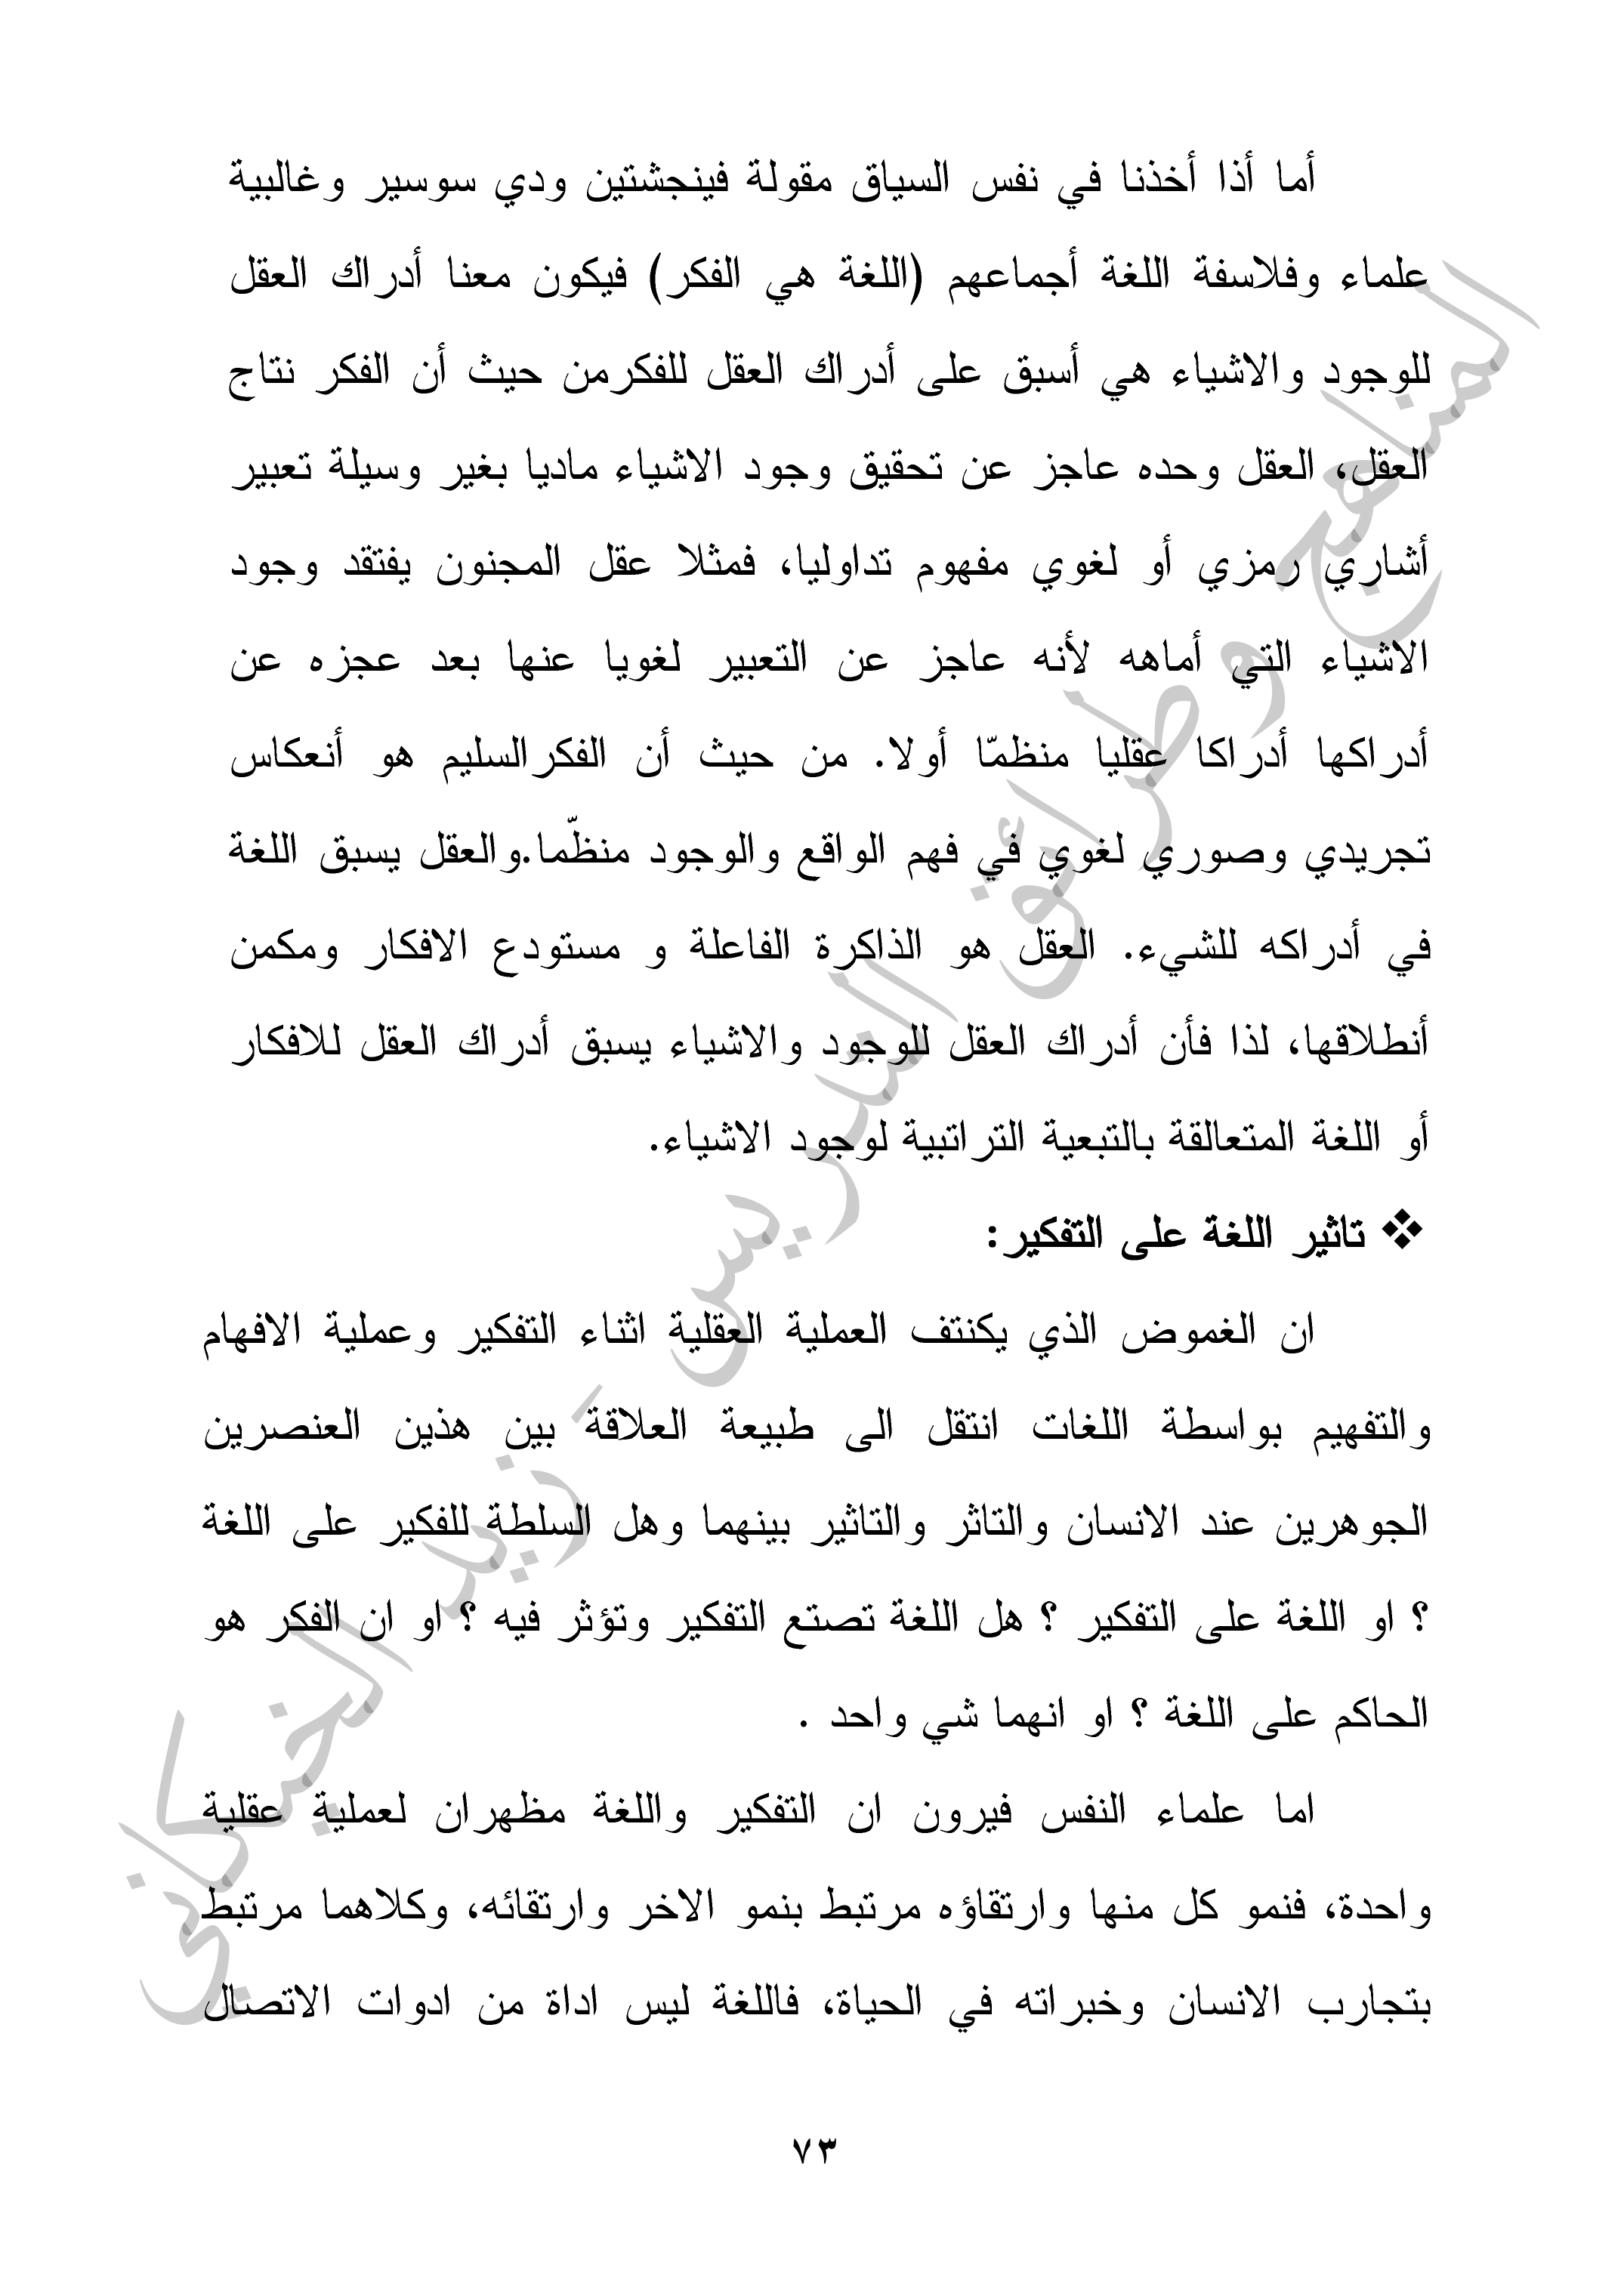 أما أذا أخذنا في نفس السياق مقولة فينجشتين ودي سوسير وغالبية
علماء وفلاسفة اللغة أجماعهم (اللغة هي الفكر) فيكون معنا أدراك العقل
للوجود والاشياء هي أسبق على أدراك العقل للفكرمن حيث أن الفكر نتاج
العقل، العقل وحده عاجز عن تحقيق وجود الاشياء ماديا بغير وسيلة تعبير
أشاري رمزي أو لغوي مفهوم تداوليا، فمثلا عقل المجنون يفتقد وجود
الاشياء التي أماهه لأنه عاجز عن التعبير لغويا عنها بعد عجزه عن
أدراكها أدراكا عقليا منظمّا أولا. من حيث أن الفكرالسليم هو أنعكاس
تجريدي وصوري لغوي في فهم الواقع والوجود منظّما.والعقل يسبق اللغة
في أدراكه للشيء. العقل هو الذاكرة الفاعلة و مستودع الافكار ومكمن
أنطلاقها، لذا فأن أدراك العقل للوجود والاشياء يسبق أدراك العقل للافكار
أو اللغة المتعالقة بالتبعية التراتبية لوجود الاشياء.
❖ تاثير اللغة على التفكير:
ان الغموض الذي يكنتف العملية العقلية اثناء التفكير وعملية الافهام
والتفهيم بواسطة اللغات انتقل الى طبيعة العلاقة بين هذين العنصرين
الجوهرين عند الانسان والتاثر والتاثير بينهما وهل السلطة للفكير على اللغة
؟ او اللغة على التفكير ؟ هل اللغة تصتع التفكير وتؤثر فيه ؟ او ان الفكر هو
الحاكم على اللغة ؟ او انهما شي واحد .
اما علماء النفس فيرون ان التفكير واللغة مظهران لعملية عقلية
واحدة، فنمو كل منها وارتقاؤه مرتبط بنمو الاخر وارتقائه، وكلاهما مرتبط
بتجارب الانسان وخبراته في الحياة، فاللغة ليس اداة من ادوات الاتصال
٧٣
المناهج وطرائق التدريس - زيد الخيكاني